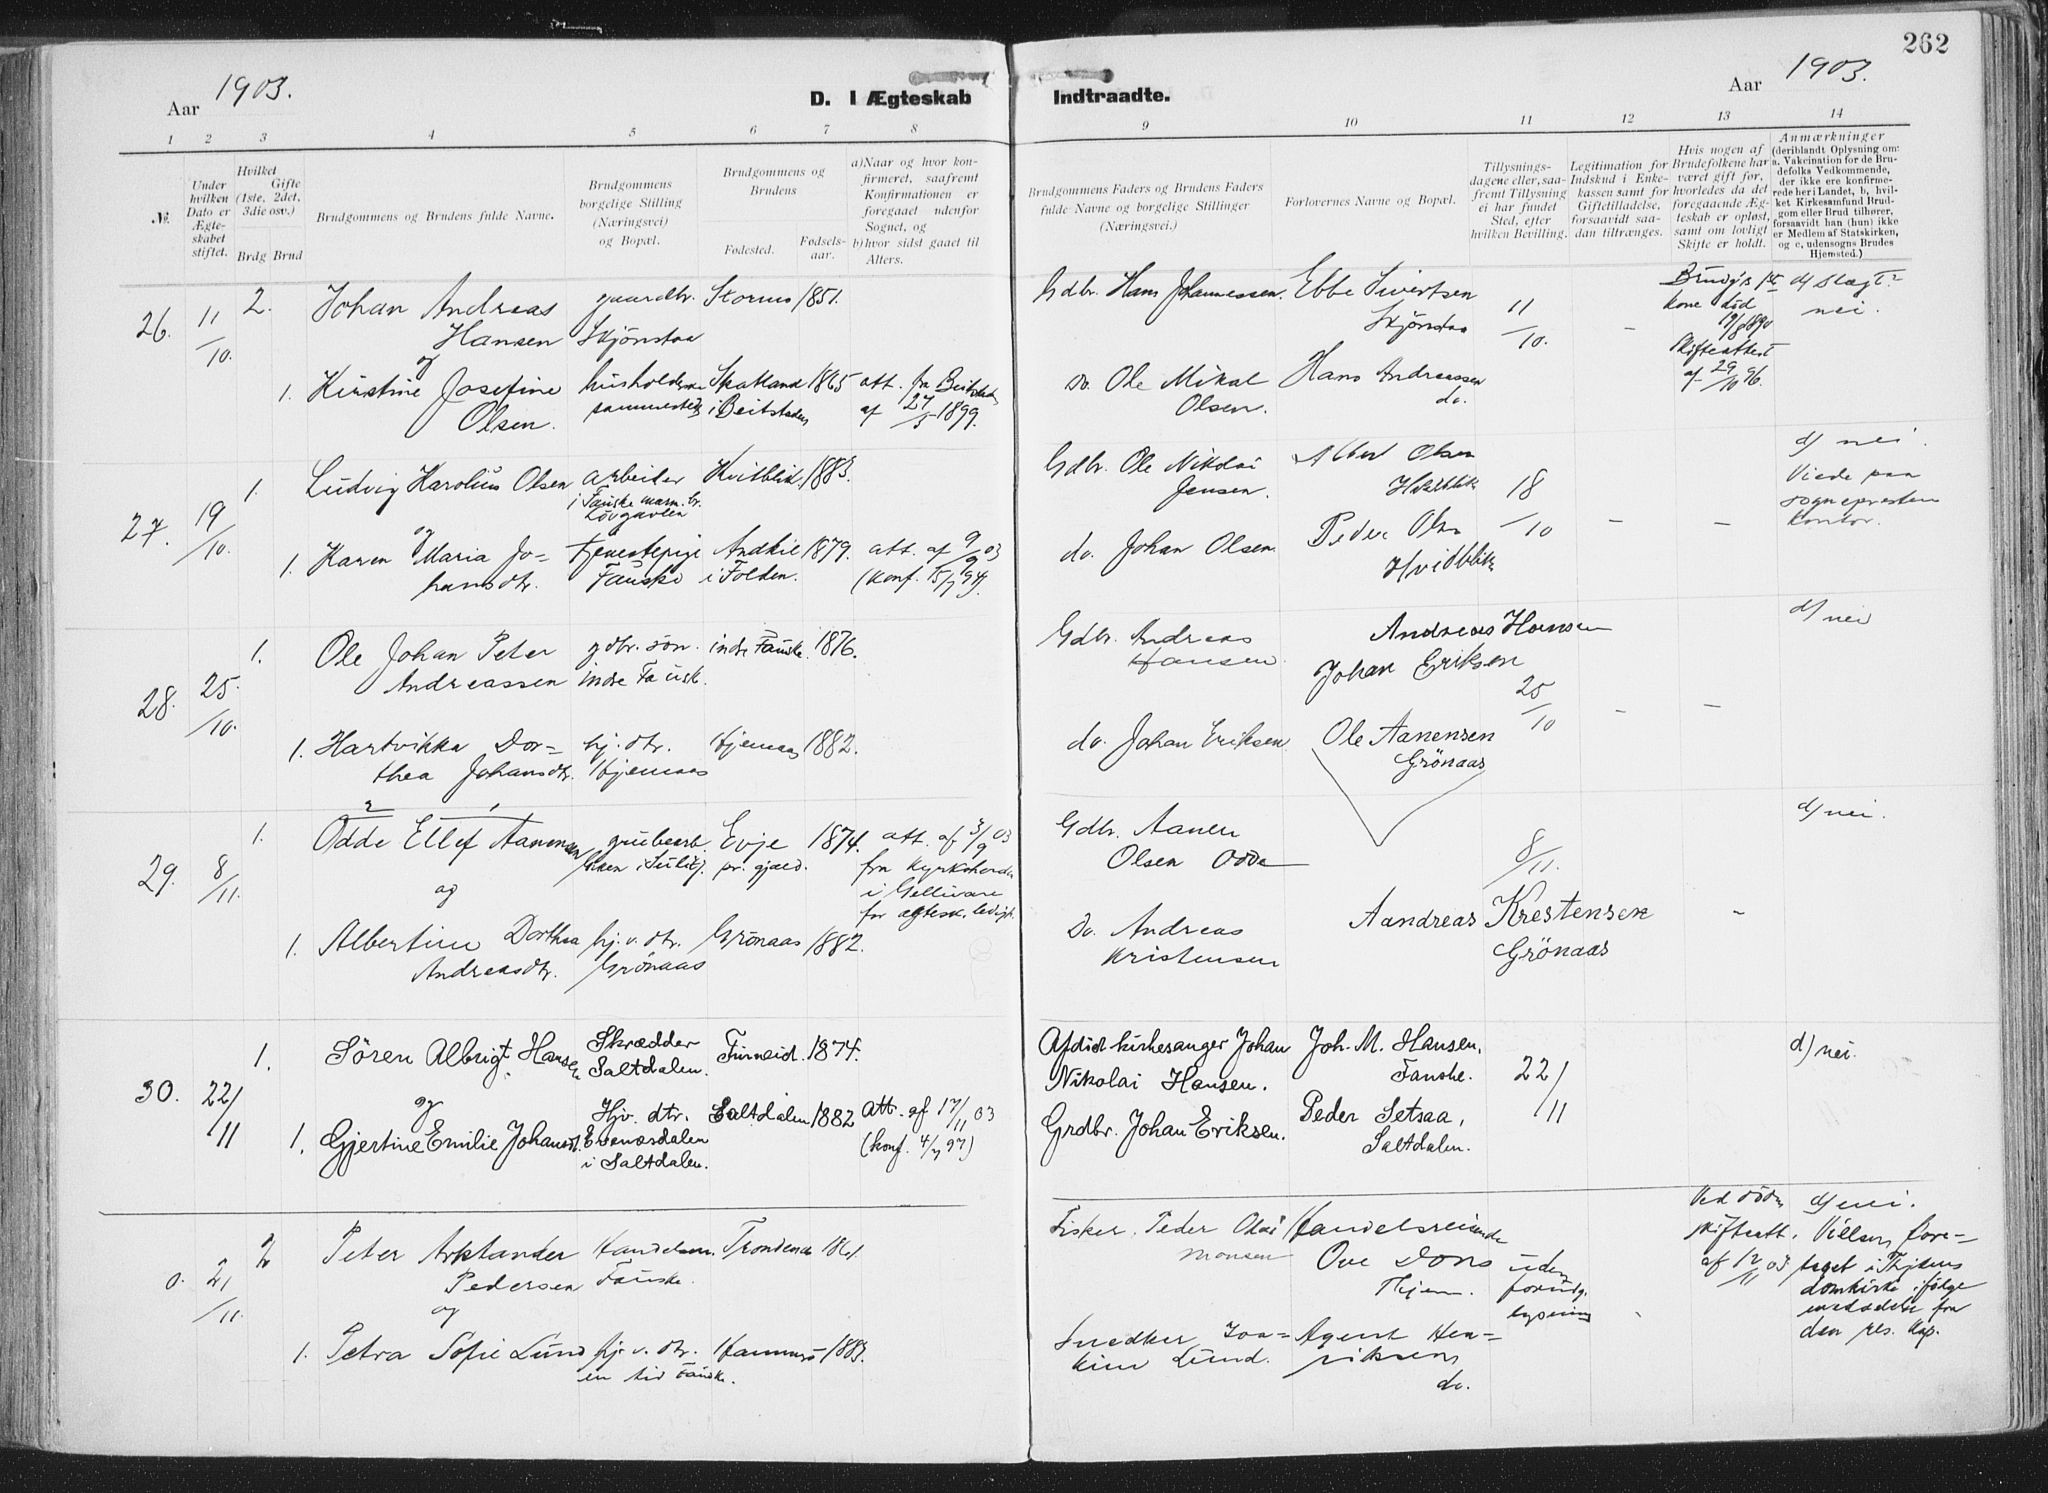 262
Aar 1903.
D. I Ægteskab
Indtraadte.
Aar 1903.
1 2 3 4 5 6 7 8
9 10 11 12 13 14
№.
Under
hvilken
Dato er
Ægte-
skabet
stiftet.
Hvilket
Gifte
(1ste, 2det,
3die osv.)
Brdg Brud
Brudgommens og Brudens fulde Navne.
Brudgommens
borgelige Stilling
(Næringsvei)
og Bopæl.
Brudgommens og
Brudens
Fødested.
Fødsels-
aar.
a) Naar og hvor kon-
firmeret, saafremt
Konfirmationen er
foregaaet udenfor
Sognet, og
b) hvor sidst gaaet til
Alters.
Brudgommens Faders og Brudens Faders
fulde Navne og borgelige Stillinger
(Næringsvei.)
Forlovernes Navne og Bopæl.
Tillysnings-
dagene eller, saa-
fremt Tillysning
ei har fundet
Sted, efter
hvilken Bevilling.
Legitimation for
Indskud i Enke-
kassen samt for
Giftetilladelse,
forsaavidt saa-
dan tiltrænges.
Hvis nogen af
Brudefolkene har
været gift før,
hvorledes da det
foregaaende Æg-
teskab er opløst,
samt om lovligt
Skifte er holdt.
Anmærkninger
(deriblandt Oplysning om:
a. Vakcination for de Bru-
defolks Vedkommende,
der ikke ere konfirme-
rede her i Landet, b, hvil-
ket Kirkesamfund Brud-
gom eller Brud tilhører,
forsaavidt han (hun) ikke
er Medlem af Statskirken,
og c, udensogns Brudes
Hjemsted.)
26. 11/10. 2. Johan Andreas
Hansen
gaardbr.
Skjønstaa
1851.
Gdbr. Hans Johannessen.
Ebbe Sivertsen
Skjønstaa
11/10.
-
kone död
19/8 1890
Skifteattest
af 29/10 96.
d) slægt?
nei.
og
1. Kirstine Josefine
Olsen.
sammesteds
i Beitstaden
1865
att. fra Beitstad
af 27/5 1899.
do. Ole Mikal
Olsen.
Hans Andreassen
do.
27. 19/10. 1. Ludvig Karolius Olsen
arbeider
i Fauske marm. br.
Løvgavlen
Kvitblik.
1883.
Gdbr. Ole Nikolai
Jensen.
Albert Olsen
18/10
-
-
d) nei.
Viede paa
sogneprestens
kontor.
og
1. Karen Maria Jo-
hansdtr.
tjenestepige
Fauske
i Folden.
1879.
att. af 9/9 03
(konf. 15/7 94).
do. Johan Olsen.
Peder Olsn
Hvidblik
28. 25/10. 1. Ole Johan Peter
Andreassen
gdbr. søn.
indre Fausk.
indre Fauske.
1876.
Gdbr. Andreas
Hansen.
Andreas Hansen
Johan Eriksen
25/10
-
-
d) nei
1. Hartvikka Dor-
thea Johansdtr.
hj. dtr.
1882.
do. Johan Eriksen.
Ole Aanensen
Grönaas
29. 8/11. 1. 2 1
Odde Ellef Aanensen
Evje
pr. gjæld.
1874.
att. af 3/9 03
i Gellivare
for ægtesk. ledigh.
Gdbr. Aanen
Olsen Odde
8/11.
d) nei.
og
1. Albertine Dorthea
Andreasdtr.
hj. v. dtr.
Grönaas
Grönaas
1882.
Do. Andreas
Kristensen
Aandreas Krestensen
Grönaas
-
30. 22/11 1. Sören Albrigt Hansen
Skrædder
Saltdalen.
Finneid.
1874.
Afdöd kirkesanger Johan
Nikolai Hansen.
Joh. M. Hansen,
Fauske.
22/11
d) nei.
og
1. Gjertine Emilie Johansdt.
Hjv. dtr.
Evenesdalen
i Saltdalen.
Saltdalen
1882
Att. af 17/11 03
(konf. 4/7 97)
Grdbr. Johan Eriksen.
Peder Setsaa,
Saltdalen.
0. 21/11. 2 Peter Arktander
Pedersen
Handelsm.
Fauske.
Trondenes
1861.
Fisker. Peder Olai
Monsen
Handelsreisende
Ove Dons
Thjem.
uden
forudg.
lysning
-
Ved döden
skifteatt.
af 12/11 03.
d) nei.
Vielsen fore-
taget i Thjems
domkirke ifölge
meddelelse fra
den res. kap.
og
1. Petra Sofie Lund
hj. v. dtr.
en tid Fauske.
1883.
Snedker Joa-
kim Lund.
Agent Hen-
riksen
do.